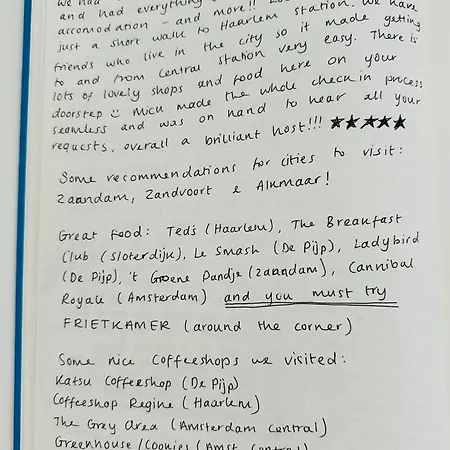 and had everything
accomodation - and more!! we have
just a short walk to Haarlem station. We have
friends who live in the city so it made getting
to and from Central Station very easy. There is
lots of lovely shops and food here on your
doorstep ☺ Micu made the whole check in process
seamless and was on hand to hear all your
requests, overall a brilliant host!!! ★★★★★
Some recommendations for cities to visit:
Zaandam, Zandvoort & Alkmaar!
Great food: Ted's (Haarlem), The Breakfast
Club (Sloterdijk), Le Smash (De Pijp), Ladybird
(De Pijp), 't Groene Pandje (Zaandam), Cannibal
Royale (Amsterdam) and you must try
FRIETKAMER (around the corner)
Some nice Coffeeshops we visited:
Katsu Coffeeshop (De Pijp)
Coffeeshop Regine (Haarlem)
The Grey Area (Amsterdam Central)
Greenhouse/Cookies (Amst. Central)